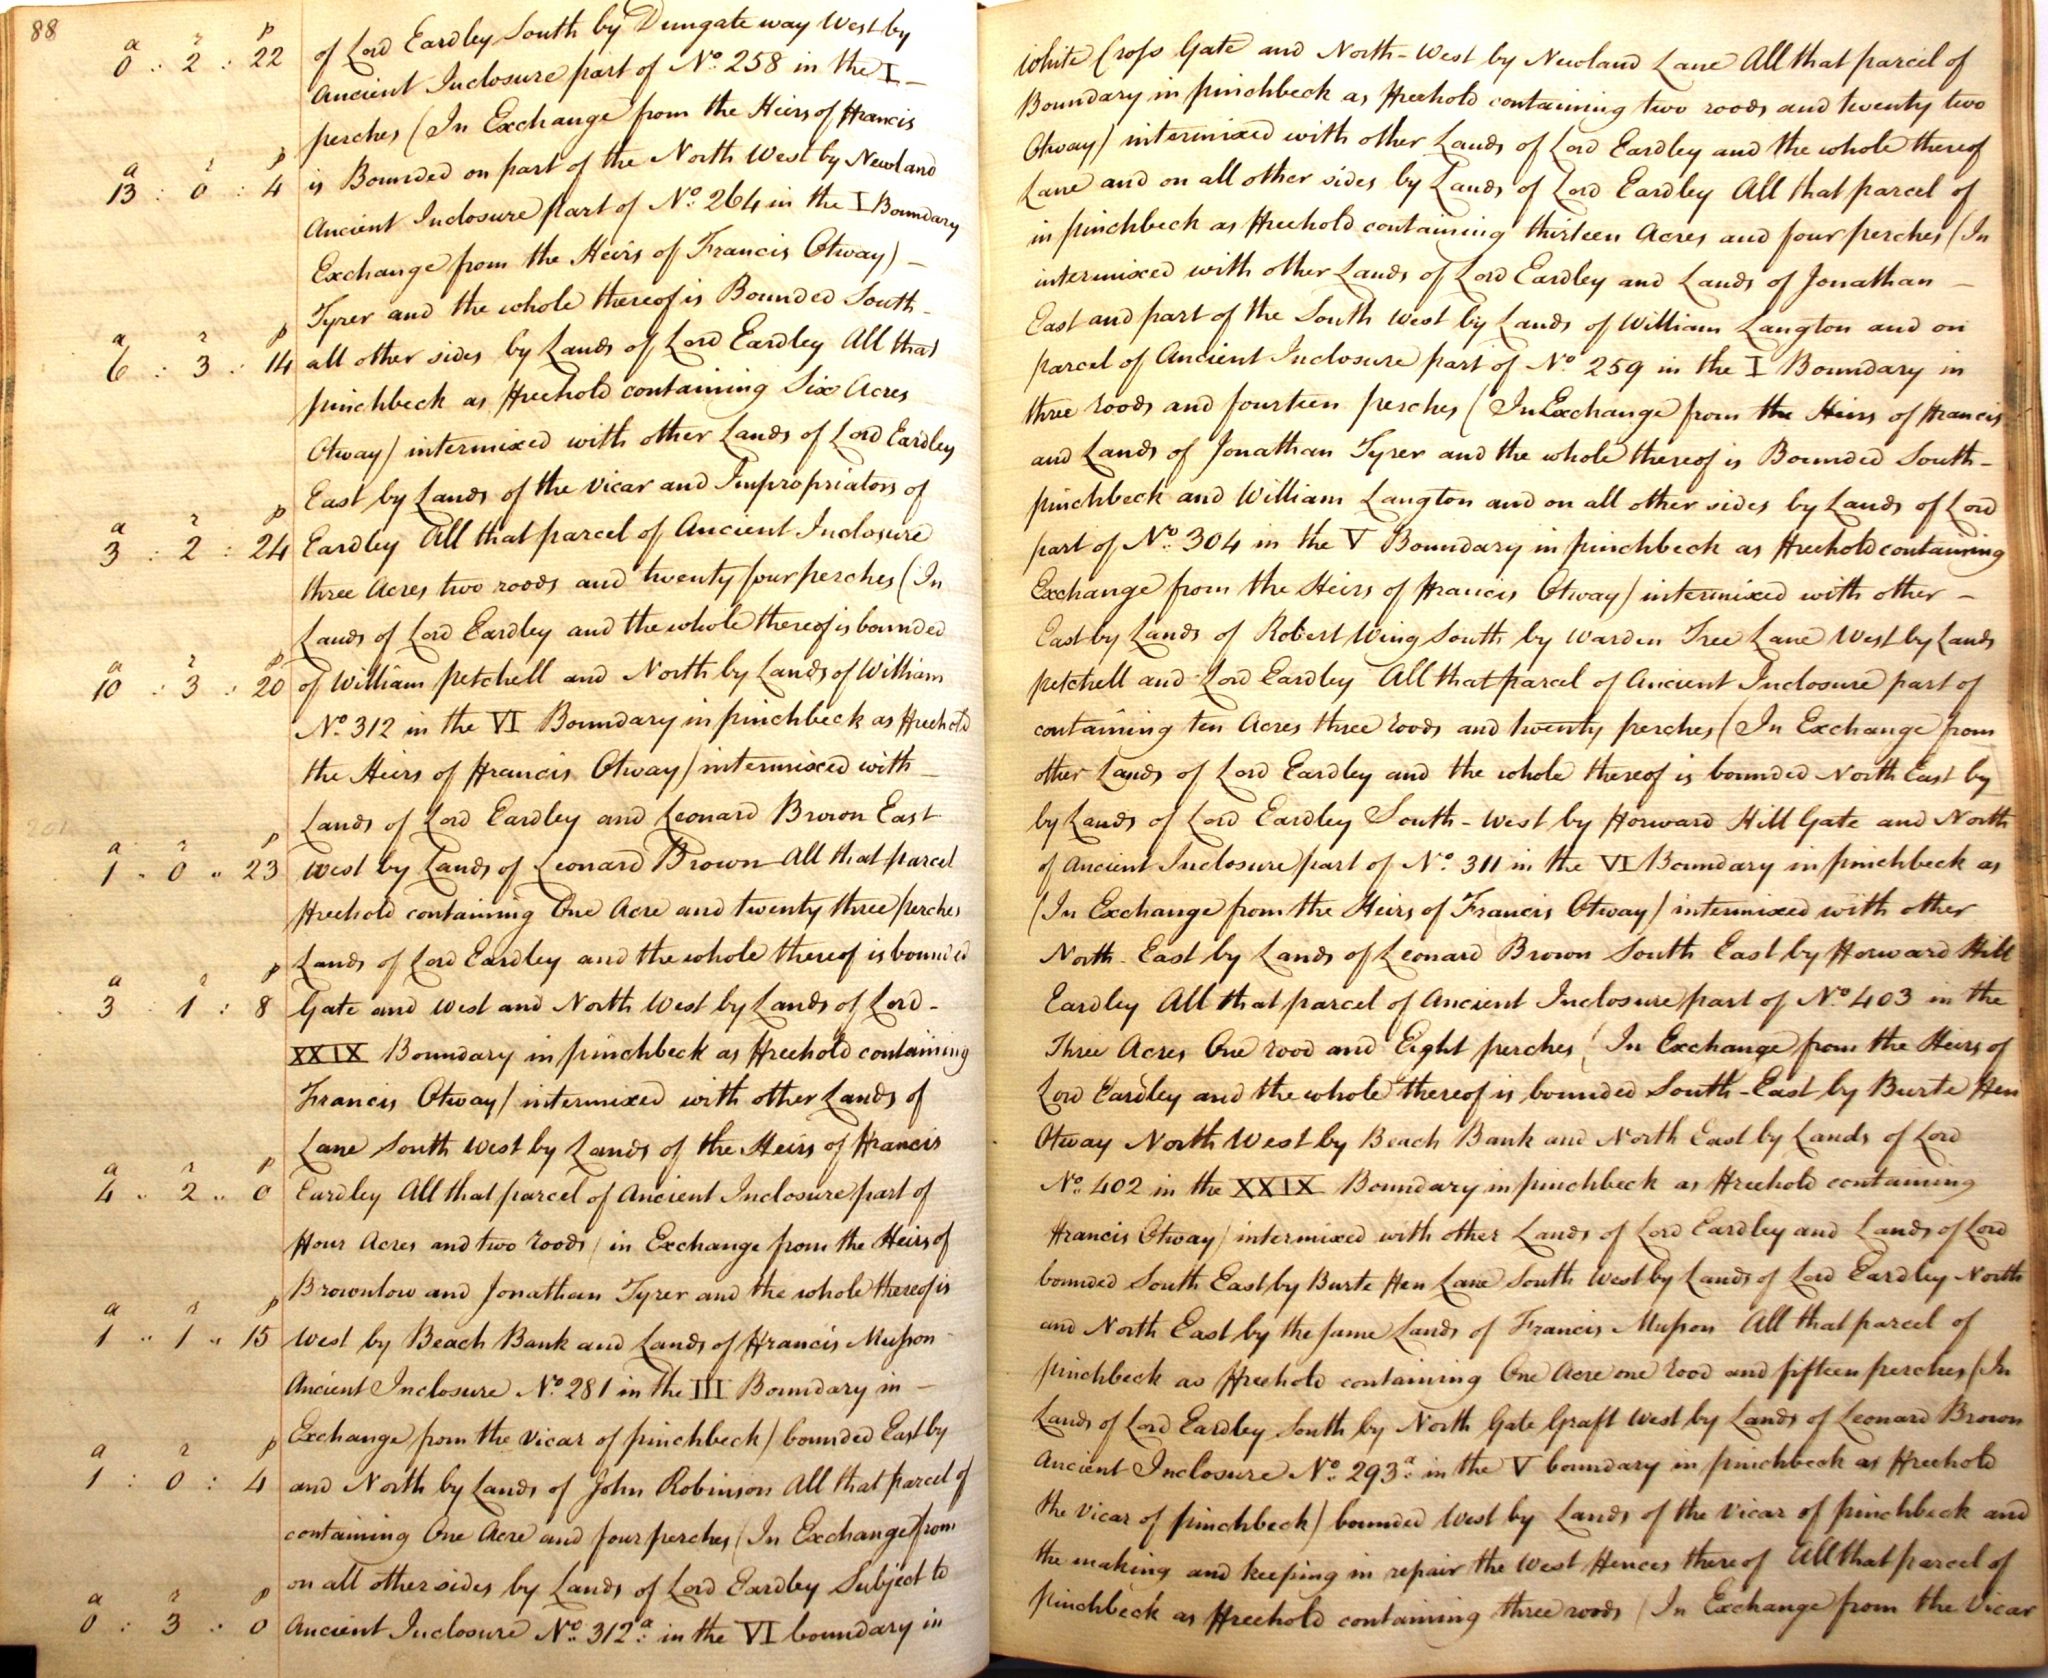 88
a r p
0 : 2 : 22 of Lord Eardley South by Dungate way West by White Cross Gate and North-West by Newland Lane All that parcel of
Ancient Inclosure part of No. 258 in the I – Boundary in pinchbeck as Freehold containing two roods and twenty two
perches (In Exchange from the Heirs of Francis Otway) intermixed with other Lands of Lord Eardley and the whole thereof
a r p
13 : 0 : 4 is Bounded on part of the North West by Newland Lane and on all other sides by Lands of Lord Eardley All that parcel of
Ancient Inclosure part of No. 264 in the I Boundary in pinchbeck as Freehold containing thirteen Acres and four perches (In
Exchange from the Heirs of Francis Otway) – intermixed with other Lands of Lord Eardley and Lands of Jonathan –
Tyrer and the whole thereof is Bounded South – East and part of the South West by Lands of William Langton and on
a r p
6 : 3 : 14 all other sides by Lands of Lord Eardley All that parcel of Ancient Inclosure part of No. 259 in the I Boundary in
pinchbeck as Freehold containing Six Acres three roods and fourteen perches (In Exchange from the Heirs of Francis
Otway) intermixed with other Lands of Lord Eardley and Lands of Jonathan Tyrer and the whole thereof is Bounded South –
East by Lands of the Vicar and Impropriators of pinchbeck and William Langton and on all other sides by Lands of Lord
a r p
3 : 2 : 24 Eardley All that parcel of Ancient Inclosure part of No. 304 in the V Boundary in pinchbeck as Freehold containing
three Acres two roods and twenty four perches (In Exchange from the Heirs of Francis Otway) intermixed with other –
Lands of Lord Eardley and the whole thereof is bounded East by Lands of Robert Wing South by Warden Tree Lane West by Lands
a r p
10 : 3 : 20 of William petchell and North by Lands of William petchell and Lord Eardley All that parcel of Ancient Inclosure part of
No. 312 in the VI Boundary in pinchbeck as Freehold containing ten Acres three roods and twenty perches (In Exchange from
the Heirs of Francis Otway) intermixed with – other Lands of Lord Eardley and the whole thereof is bounded North East by
Lands of Lord Eardley and Leonard Brown East by Lands of Lord Eardley South-West by Forward Hill Gate and North
a r p
1 " 0 " 23 West by Lands of Leonard Brown All that parcel of Ancient Inclosure part of No. 311 in the VI Boundary in pinchbeck as
Freehold containing One Acre and twenty three perches (In Exchange from the Heirs of Francis Otway) intermixed with other
Lands of Lord Eardley and the whole thereof is bounded North-East by Lands of Leonard Brown South East by Forward Hill
a r p
3 : 1 : 8 Gate and West and North West by Lands of Lord – Eardley All that parcel of Ancient Inclosure part of No. 403 in the
XXIX Boundary in pinchbeck as Freehold containing Three Acres One rood and Eight perches (In Exchange from the Heirs of
Francis Otway) intermixed with other Lands of Lord Eardley and the whole thereof is bounded South-East by Burte Hen
Lane South West by Lands of the Heirs of Francis Otway North West by Beach Bank and North East by Lands of Lord
a r p
4 " 2 " 0 Eardley All that parcel of Ancient Inclosure part of No. 402 in the XXIX Boundary in pinchbeck as Freehold containing
Four Acres and two roods (in Exchange from the Heirs of Francis Otway) intermixed with other Lands of Lord Eardley and Lands of Lord
Brownlow and Jonathan Tyrer and the whole thereof is bounded South East by Burte Hen Lane South West by Lands of Lord Eardley North
a r p
1 " 1 " 15 West by Beach Bank and Lands of Francis Musson and North East by the same Lands of Francis Musson All that parcel of
Ancient Inclosure No. 281 in the III Boundary in – pinchbeck as Freehold containing One Acre one rood and fifteen perches (In
Exchange from the Vicar of pinchbeck) bounded East by Lands of Lord Eardley South by North Gate Graft West by Lands of Leonard Brown
a r p
1 : 0 : 4 and North by Lands of John Robinson All that parcel of Ancient Inclosure No. 293a. in the V boundary in pinchbeck as Freehold
containing One Acre and four perches (In Exchange from the Vicar of pinchbeck) bounded West by Lands of the Vicar of pinchbeck and
on all other sides by Lands of Lord Eardley Subject to the making and keeping in repair the West Fences thereof All that parcel of
a r p
0 : 3 : 0 Ancient Inclosure No. 312a. in the VI boundary in pinchbeck as Freehold containing three roods (In Exchange from the Vicar